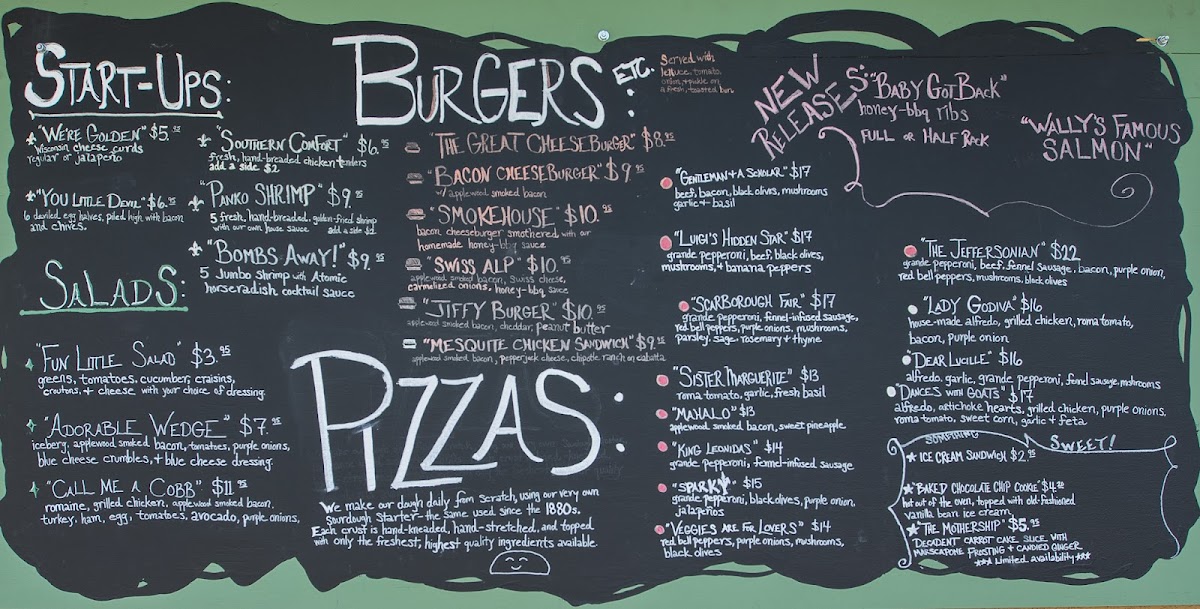 START-UPS:
"WE'RE GOLDEN" $5.95
Wisconsin cheese curds
regular or jalapeño
"YOU LITTLE DEVIL" $6.95
6 deviled egg halves, piled high with bacon
and chives.
"SOUTHERN COMFORT" $6.95
fresh, hand-breaded chicken tenders
add a side $2
"PANKO SHRIMP" $9.95
5 fresh, hand-breaded, golden-fried shrimp
with our own house sauce add a side $2
"BOMBS AWAY!" $9.95
5 Jumbo shrimp with Atomic
horseradish cocktail sauce
SALADS:
"FUN LITTLE SALAD" $3.95
greens, tomatoes, cucumber, craisins,
croutons, + cheese with your choice of dressing.
"ADORABLE WEDGE" $7.95
iceberg, applewood smoked bacon, tomatoes, purple onions,
blue cheese crumbles, + blue cheese dressing.
"CALL ME A COBB" $11.95
romaine, grilled chicken, applewood smoked bacon,
turkey, ham, egg, tomatoes, avocado, purple onions,
BURGERS ETC.:
Served with
lettuce, tomato,
onion, + pickle on
a fresh, toasted bun.
"THE GREAT CHEESEBURGER" $8.95
"BACON CHEESEBURGER" $9.95
w/ applewood smoked bacon
"SMOKEHOUSE" $10.95
bacon cheeseburger smothered with our
homemade honey-bbq sauce
"SWISS ALP" $10.95
applewood smoked bacon, swiss cheese,
carmelized onions, honey-bbq sauce
"JIFFY BURGER" $10.95
applewood smoked bacon, cheddar, peanut butter
"MESQUITE CHICKEN SANDWICH" $9.95
applewood smoked bacon, pepperjack cheese, chipotle ranch on ciabatta
PIZZAS:
We make our dough daily from scratch, using our very own
Sourdough starter-the same used since the 1880s.
Each crust is hand-kneaded, hand-stretched, and topped
with only the freshest, highest quality ingredients available
NEW
RELEASES:
"BABY GOT BACK"
honey-bbq ribs
FULL OR HALF RACK
"WALLY'S FAMOUS
SALMON"
"GENTLEMAN + A SCHOLAR" $17
beef, bacon, black olives, mushrooms
garlic + basil
"LUIGI'S HIDDEN STAR" $17
grande pepperoni, beef, black olives,
mushrooms, + banana peppers
"SCARBOROUGH FAIR" $17
grande pepperoni, fennel-infused sausage,
red bell peppers, purple onions, mushrooms,
parsley, sage, rosemary + thyme
"SISTER MARGUERITE" $13
roma tomato, garlic, fresh basil
"MAHALO" $13
applewood smoked bacon, sweet pineapple
"KING LEONIDAS" $14
grande pepperoni, fennel-infused sausage
"SPARKY" $15
grande pepperoni, black olives, purple onion,
jalapeños
"VEGGIES ARE FOR LOVERS" $14
red bell peppers, purple onions, mushrooms,
black olives
"THE JEFFERSONIAN" $22
grande pepperoni, beef, fennel sausage, bacon, purple onion,
red bell peppers, mushrooms, black olives
"LADY GODIVA" $16
house-made alfredo, grilled chicken, roma tomato,
bacon, purple onion
"DEAR LUCILLE" $16
alfredo, garlic, grande pepperoni, fennel sausage, mushrooms
"DANCES WITH GOATS" $17
alfredo, artichoke hearts, grilled chicken, purple onions,
roma tomato, sweet corn, garlic + feta
SOMETHING SWEET!
ICE CREAM SANDWICH $2.95
"BAKED CHOCOLATE CHIP COOKIE" $4.50
hot out of the oven, topped with old-fashioned
vanilla bean ice cream.
"THE MOTHERSHIP" $5.95
DECADENT CARROT CAKE SLICE WITH
MARSCAPONE FROSTING + CANDIED GINGER
*** Limited availability ***